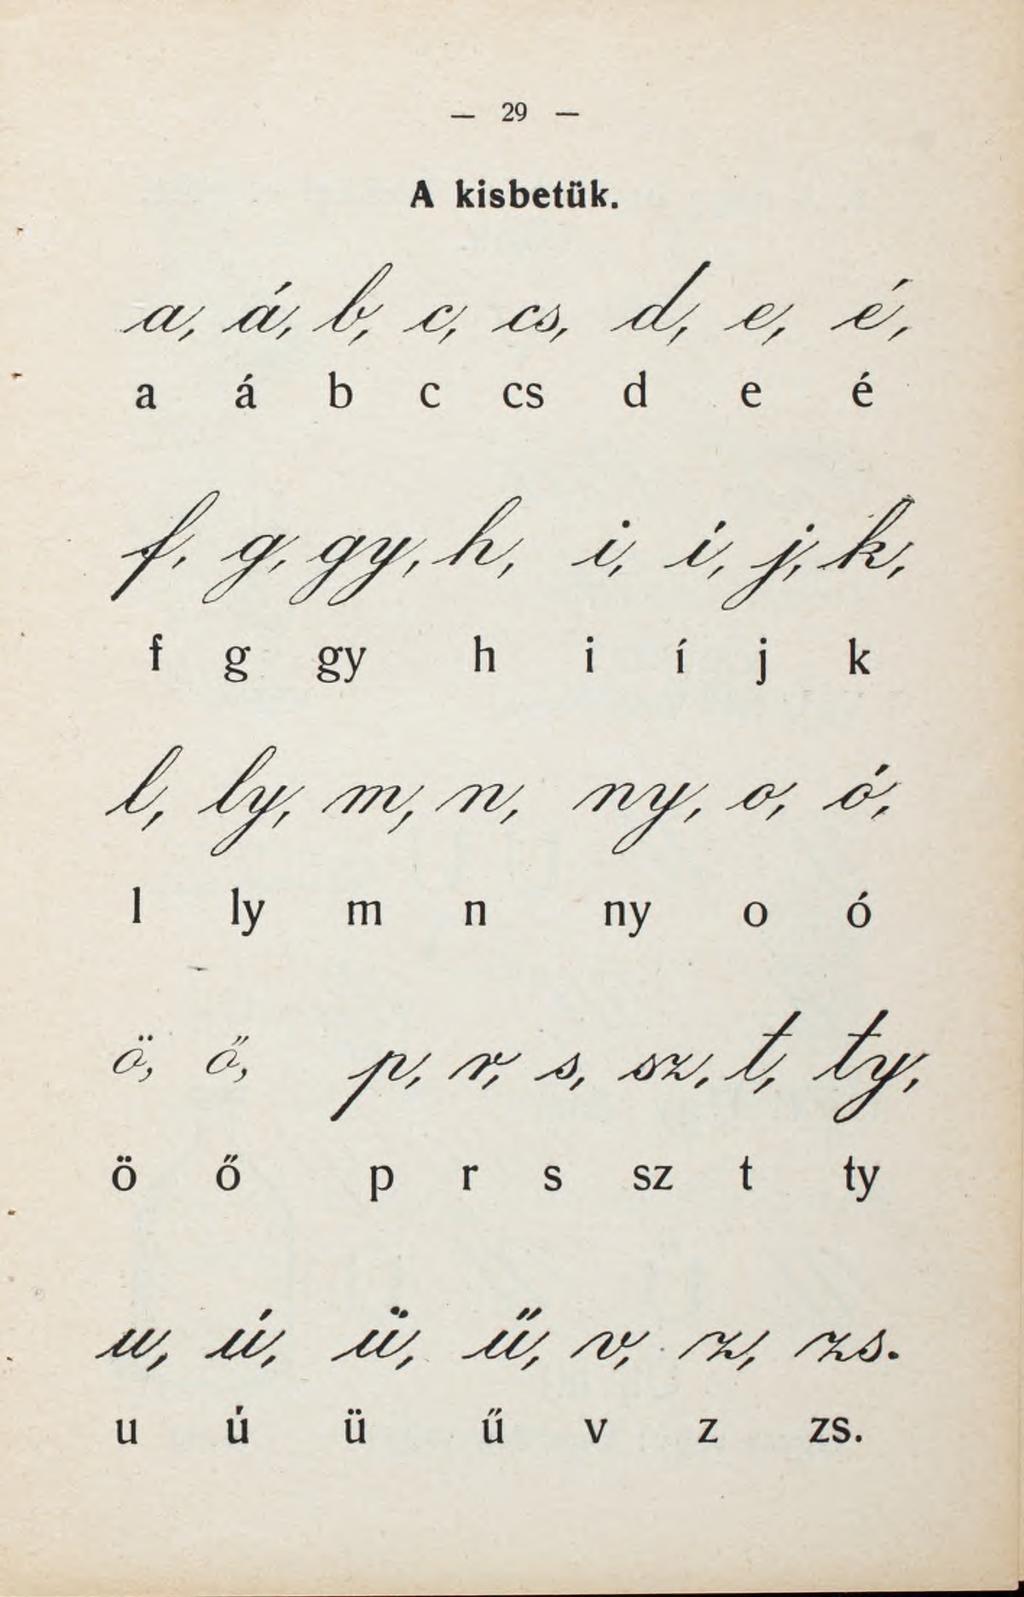 — 29 —
A kisbetük.
a, á, b, c, cs, d, e, é,
a á b c cs d e é
f, g, gy, h, i, í, j, k,
f g gy h i í j k
l, ly, m, n, ny, o, ó,
l ly m n ny o ó
ö, ő, p, r, s, sz, t, ty,
ö ő p r s sz t ty
u, ú, ü, ű, v, z, zs.
u ú ü ű v z zs.